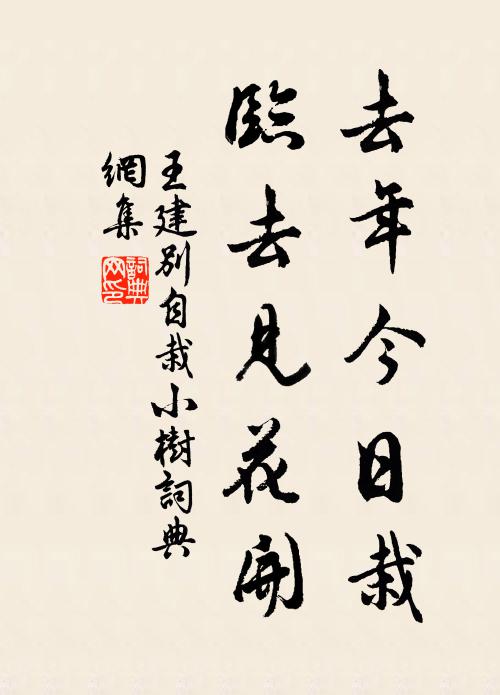 去年今日栽
臨去見花開
王建別自栽小樹詞典
網集
詞典網印